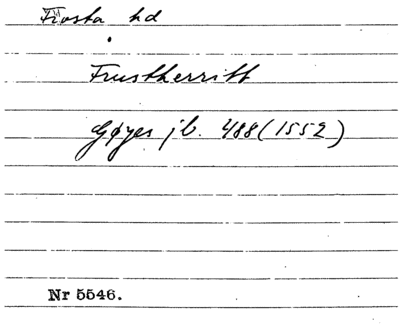 Frosta hd
Frustherritt
Gøyes jb. 488 (1552)
Nr 5546.